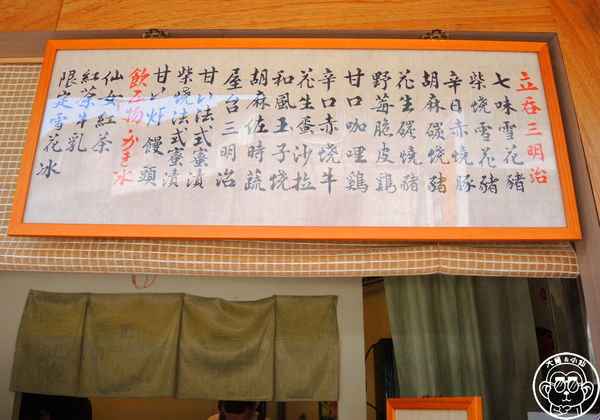 立吞三明治
七味雪花豬
柴燒雪花豬
辛日赤燒豚
胡麻碳燒豬
花生碳燒豬
野莓脆皮雞
甘口咖哩雞
辛口赤燒牛
花生蛋沙拉
和風玉子燒
胡麻佐時蔬
屋台三明治
甘い法式蜜漬
柴燒法式蜜漬
甘い炸饅頭
飲み物・かき冰
仙女紅茶
紅茶牛乳
限定雪花冰
大團&小茹